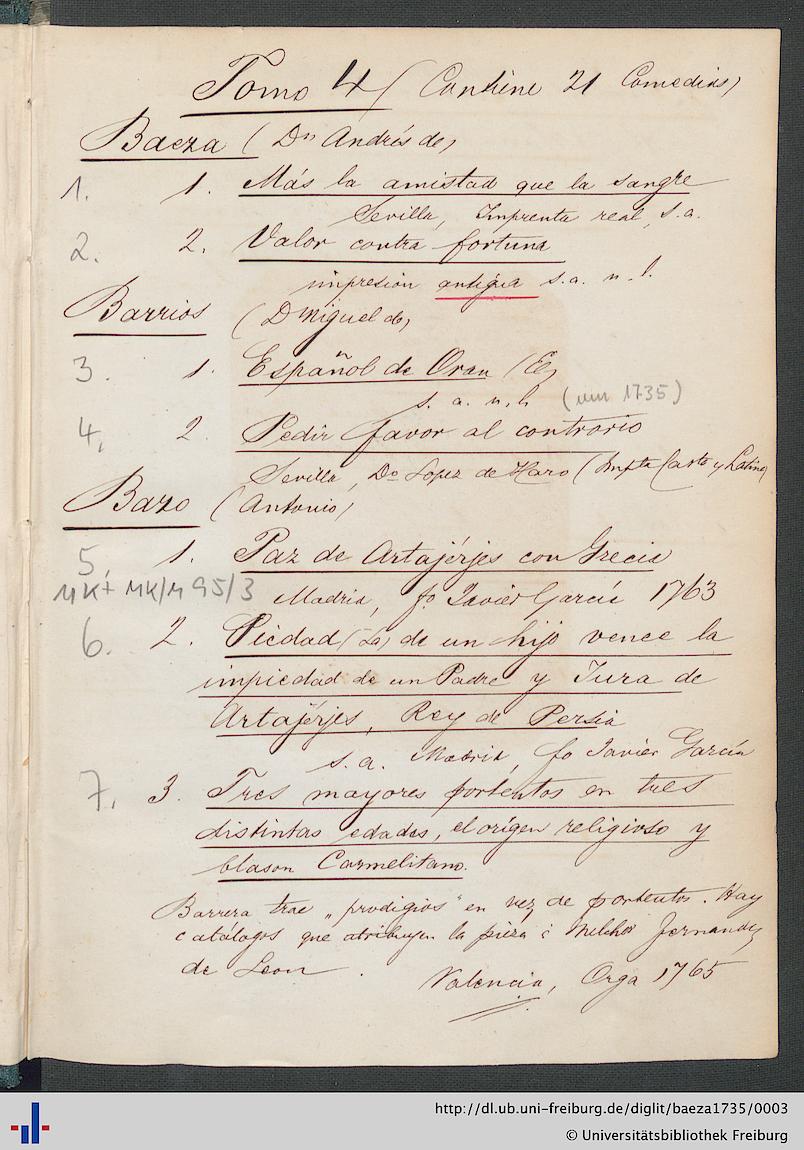 Tomo 4 (Contiene 21 Comedias)
Baeza (Dn Andrés de)
1. 1. Más la amistad que la sangre
Sevilla, Imprenta real, s.a.
2. 2. Valor contra fortuna
impresion antigua s.a. n. l.
Barrios (D Miguel de)
3. 1. Español de Oran (El)
s. a. n. l. (um 1735)
4. 2. Pedir favor al contrario
Sevilla, Do Lopez de Haro (Impta Casta y Latina)
Bazo (Antonio)
5. 1. Paz de Artajérjes con Grecia
MK+ MK/M 95/3 Madrid, fo Javiér García 1763
6. 2. Piedad (La) de un hijo vence la
impiedad de un Padre y Jura de
Artajérjes, Rey de Persia
s. a. Madrid, fo Javiér García
7. 3. Tres mayores portentos en tres
distintas edades, el orígen religioso y
blason Carmelitano.
Barrera trae „prodigios" en vez de portentos. Hay
catálogos que atribuyen la pieza á Melchor Fernandez
de Leon.
Valencia, Orga 1765
http://dl.ub.uni-freiburg.de/diglit/baeza1735/0003
© Universitätsbibliothek Freiburg